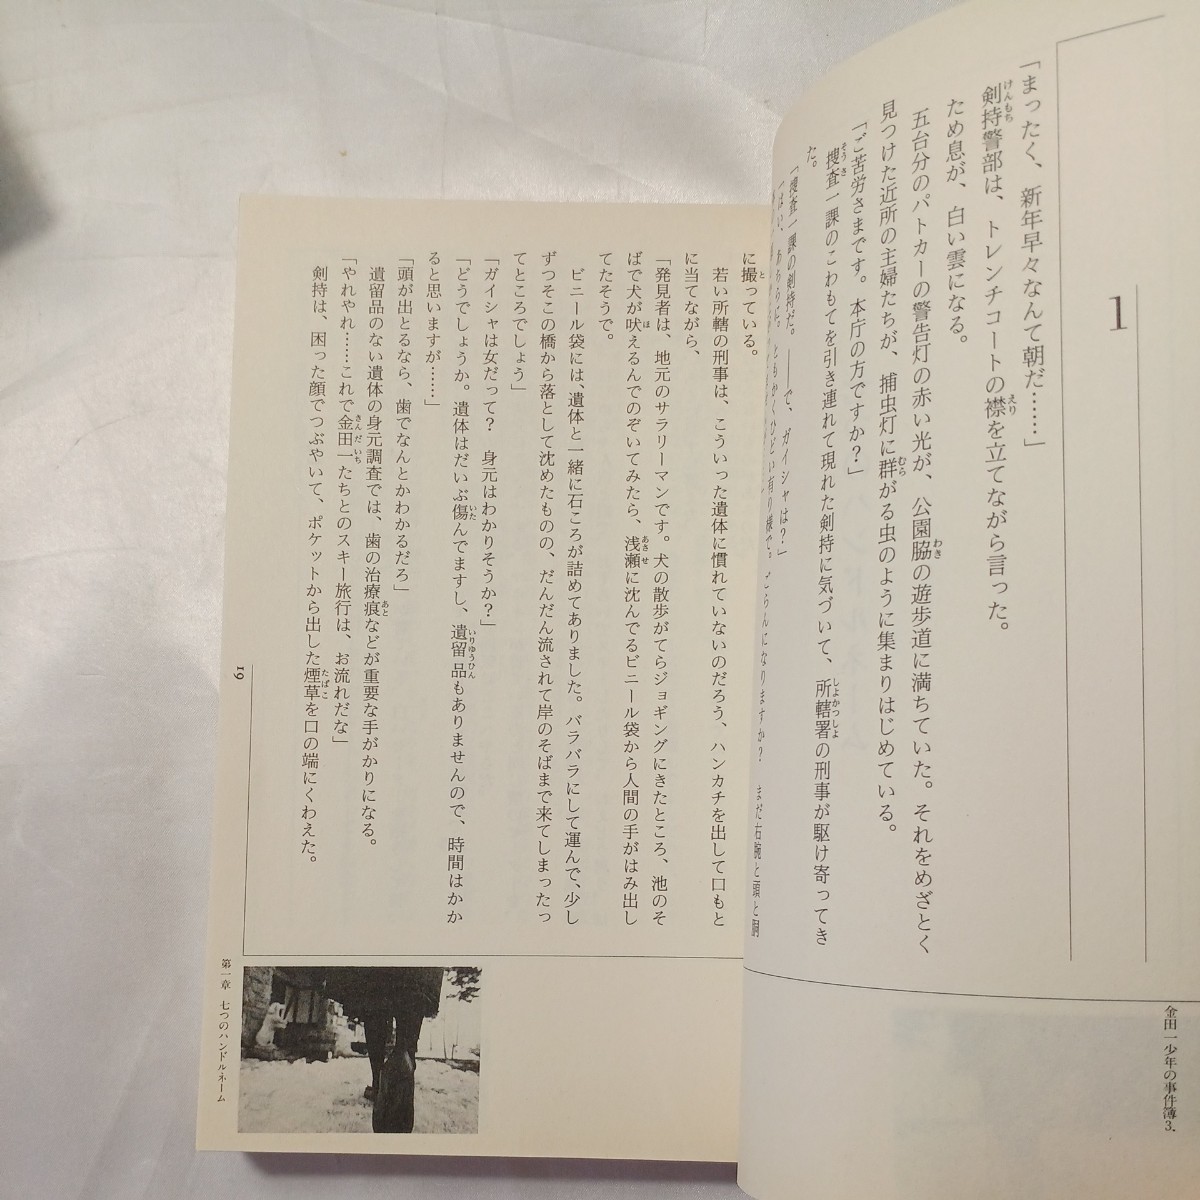 1
「まったく、新年早々なんて朝だ……」
剣持警部は、トレンチコートの襟を立てながら言った。
ため息が、白い雲になる。
五台分のパトカーの警告灯の赤い光が、公園脇の遊歩道に満ちていた。それをめざとく
見つけた近所の主婦たちが、捕虫灯に群がる虫のように集まりはじめている。
「ご苦労さまです。本庁の方ですか？」
捜査一課のこわもてを引き連れて現れた剣持に気づいて、所轄署の刑事が駆け寄ってき
た。
「捜査一課の剣持だ。――で、ガイシャは？」
「はい、あちらに。ともかくひどい有り様で。ごらんになりますか？　まだ右腕と頭と胴
金田一少年の事件簿3.
に撮っている。
若い所轄の刑事は、こういった遺体に慣れていないのだろう、ハンカチを出して口もと
に当てながら、
「発見者は、地元のサラリーマンです。犬の散歩がてらジョギングにきたところ、池のそ
ばで犬が吠えるんでのぞいてみたら、浅瀬に沈んでるビニール袋から人間の手がはみ出し
てたそうで。
ビニール袋には、遺体と一緒に石ころが詰めてありました。バラバラにして運んで、少し
ずつそこの橋から落として沈めたものの、だんだん流されて岸のそばまで来てしまったっ
てところでしょう」
「ガイシャは女だって？　身元はわかりそうか？」
「どうでしょうか。遺体はだいぶ傷んでますし、遺留品もありませんので、時間はかか
ると思いますが……」
「頭が出とるなら、歯でなんとかわかるだろ」
遺留品のない遺体の身元調査では、歯の治療痕などが重要な手がかりになる。
「やれやれ……これで金田一たちとのスキー旅行は、お流れだな」
剣持は、困った顔でつぶやいて、ポケットから出した煙草を口の端にくわえた。
19
第一章　七つのハンドルネーム